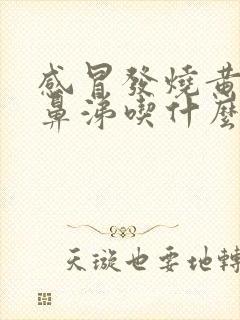 感冒發燒黃
鼻涕喫什麼
天璇也要地轉